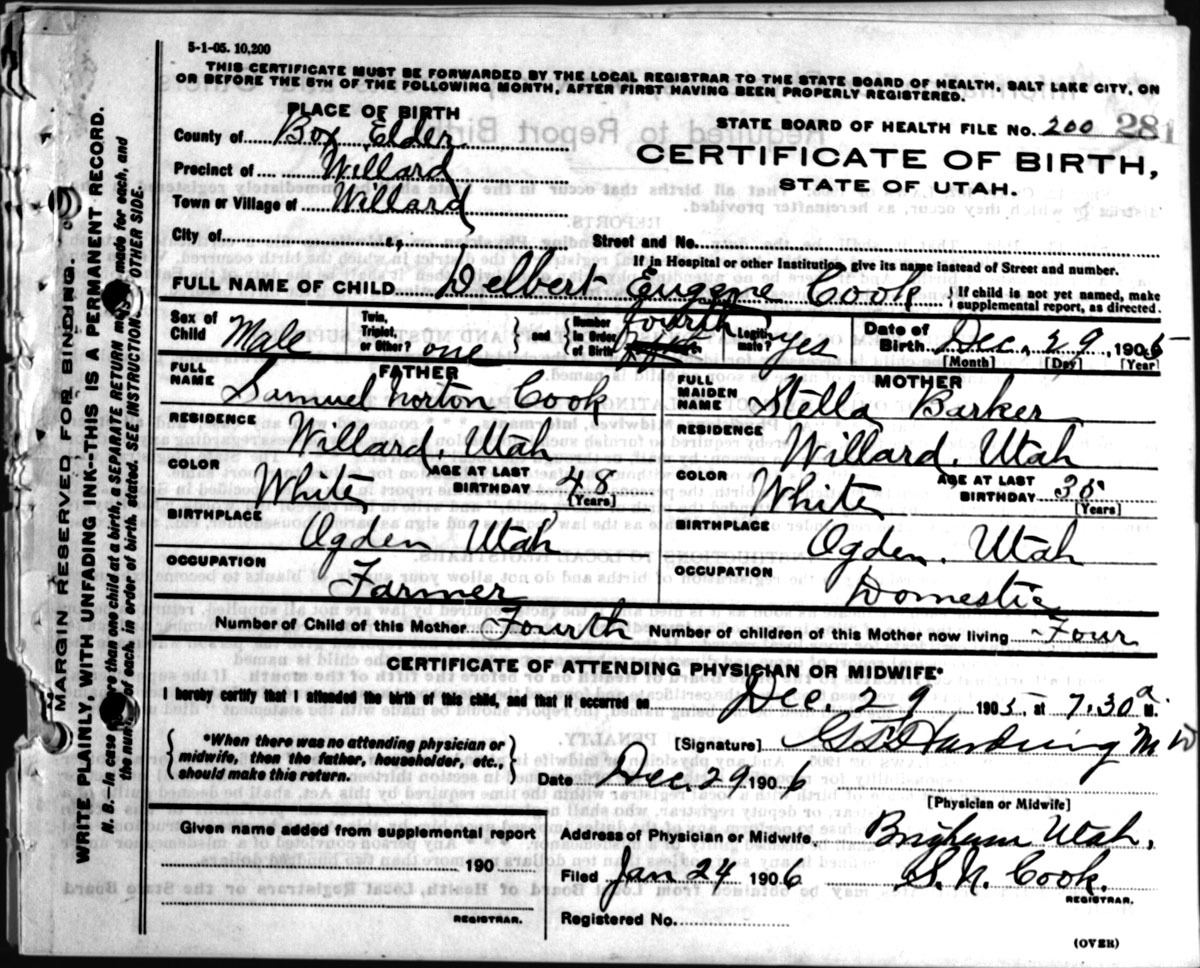 5-1-05. 10,200
THIS CERTIFICATE MUST BE FORWARDED BY THE LOCAL REGISTRAR TO THE STATE BOARD OF HEALTH, SALT LAKE CITY, ON
OR BEFORE THE 5TH OF THE FOLLOWING MONTH, AFTER FIRST HAVING BEEN PROPERLY REGISTERED.
PLACE OF BIRTH
County of Box Elder
Precinct of Willard
Town or Village of Willard
STATE BOARD OF HEALTH FILE No. 200 281
CERTIFICATE OF BIRTH,
STATE OF UTAH.
City of Street and No.
If in Hospital or other Institution, give its name instead of Street and number.
FULL NAME OF CHILD Delbert Eugene Cook { If child is not yet named, make supplemental report, as directed.
Sex of Child Male
Twin, Triplet, or Other? one } and { Number in Order of Birth fourth
Legitimate? yes
Date of Birth Dec. 29, 1905
[Month] [Day] [Year]
FATHER
FULL NAME Samuel Norton Cook
RESIDENCE Willard, Utah
COLOR White AGE AT LAST BIRTHDAY 48 [Years]
BIRTHPLACE Ogden Utah
OCCUPATION Farmer
MOTHER
FULL MAIDEN NAME Stella Barker
RESIDENCE Willard, Utah
COLOR White AGE AT LAST BIRTHDAY [Years]
BIRTHPLACE Ogden, Utah
OCCUPATION Domestic
Number of Child of this Mother Fourth Number of children of this Mother now living Four
CERTIFICATE OF ATTENDING PHYSICIAN OR MIDWIFE*
I hereby certify that I attended the birth of this child, and that it occurred on Dec. 29 1905, at 7.30 a M.
{ *When there was no attending physician or midwife, then the father, householder, etc., should make this return. }
[Signature] Harding
Date Dec. 29 1906
[Physician or Midwife]
Given name added from supplemental report
190
REGISTRAR.
Address of Physician or Midwife. Brigham Utah,
Filed Jan 24 1906 S. N. Cook.
REGISTRAR.
Registered No.
(OVER)
MARGIN RESERVED FOR BINDING.
WRITE PLAINLY, WITH UNFADING INK--THIS IS A PERMANENT RECORD.
N. B.--In case more than one child at a birth, a SEPARATE RETURN must be made for each, and
the number of each, in order of birth stated. SEE INSTRUCTIONS OTHER SIDE.